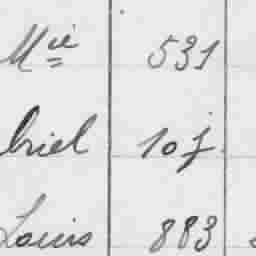 Mie 531
briel 10j
Louis 883